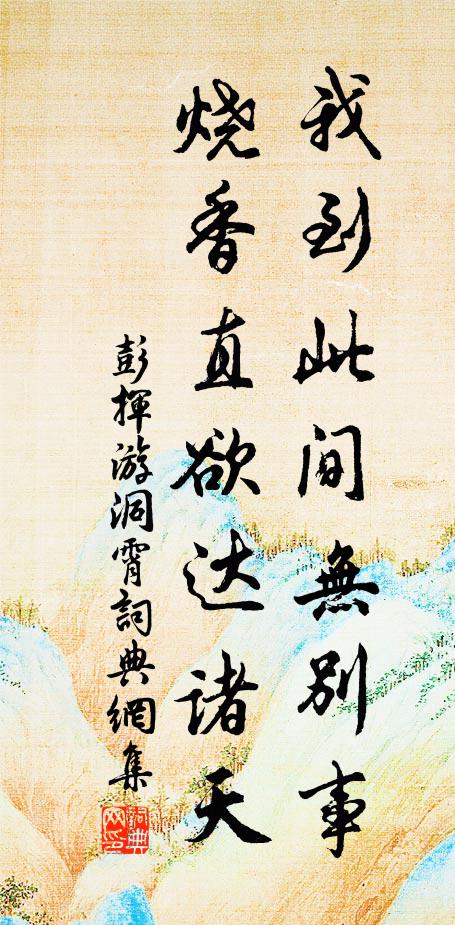 我到此间無别事
烧香直欲达诸天
彭揮游洞霄詞典網集
詞典